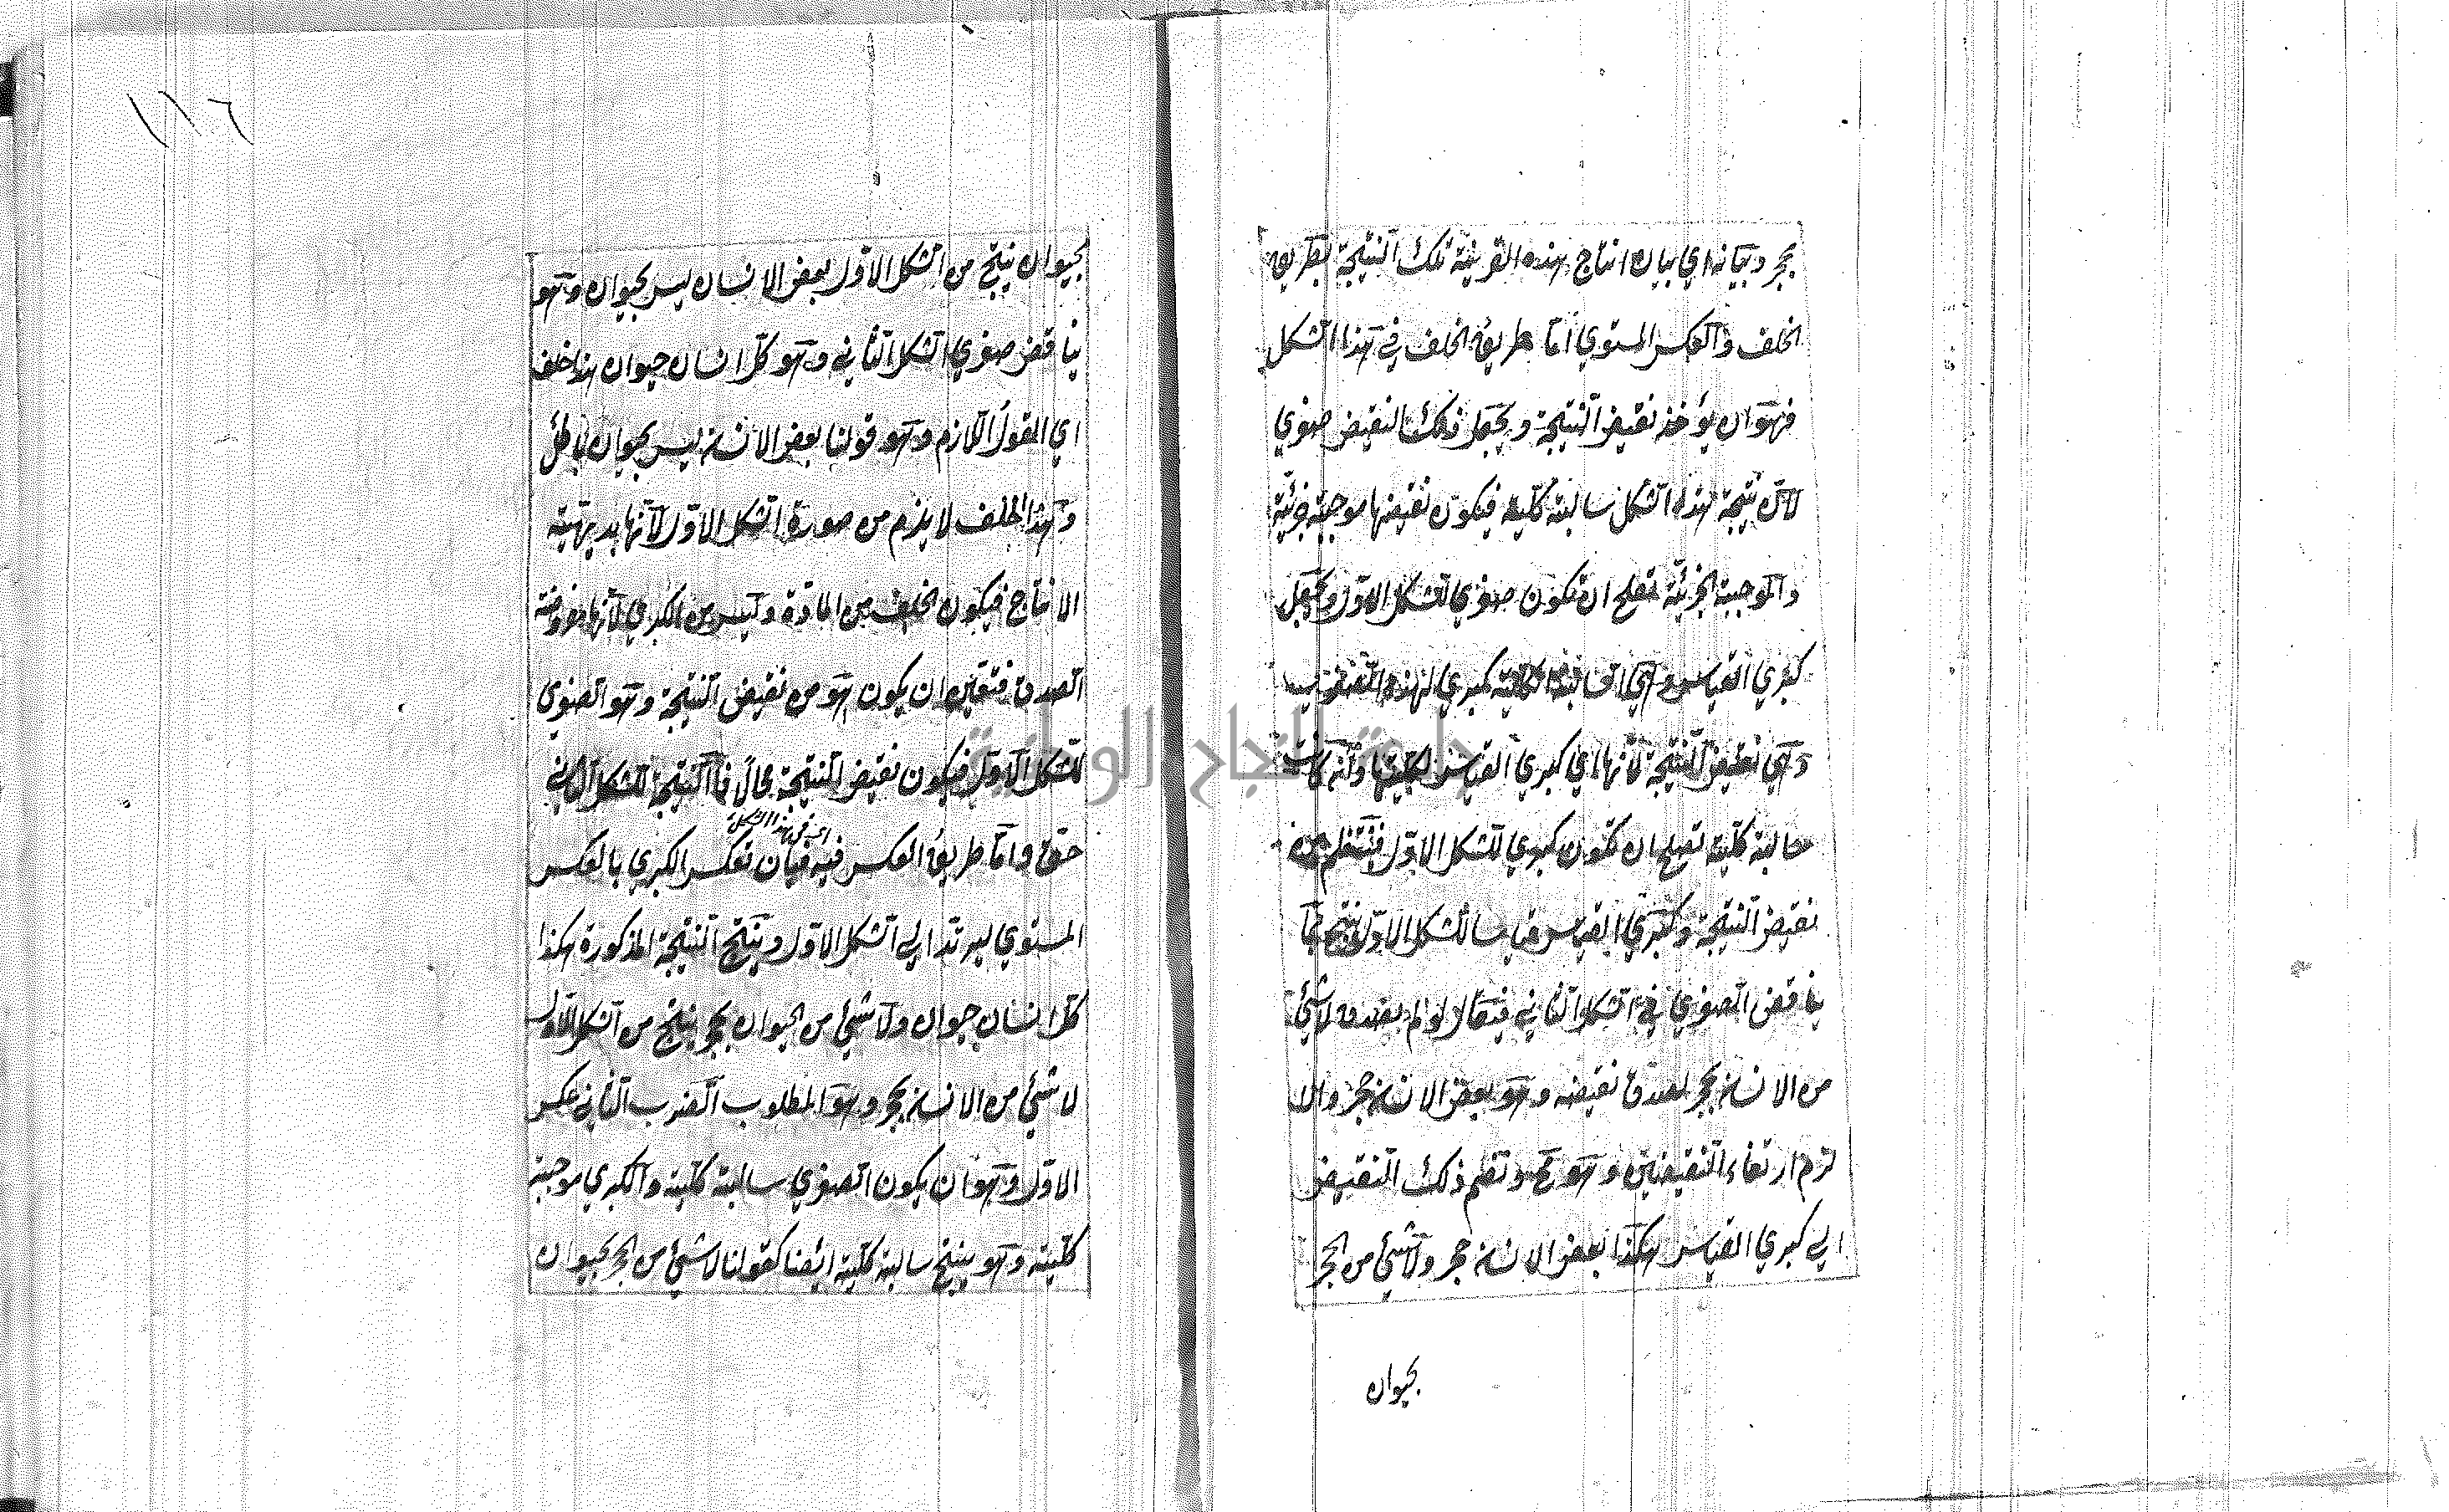 بحجر وبيانه اي بيان انتاج هذه القرينة تلك النتيجة بطريق
الخلف والعكس المستوي اما طريق الخلف في هذا الشكل
فهو ان يؤخذ نقيض النتيجة ويجعل ذلك النقيض صغري
لان نتيجة هذا الشكل سالبة كلية فيكون نقيضها موجبة جزئية
والموجبة الجزئية تصلح ان تكون صغري للشكل الاول ويجعل
كبري القياس وهي السالبة الكلية كبري لهذه
وهي نقيض النتيجة لانها اي كبري القياس لكليتها ولانه كانت
سالبة كلية تصلح ان تكون كبري للشكل الاول فينتظم من
نقيض النتيجة وكبري القياس قياس الشكل الاول ينتج لما
يناقض الصغري في الشكل الثاني فيقال لو لم يصدق لا شئ
من الانسان بحجر لصدق نقيضه وهو بعض الانسان حجر والا
لزم ارتفاع النقيضين وهو مح وتضم ذلك النقيض
الي كبري القياس هكذا بعض الانسان حجر ولا شئ من الحجر
بحيوان
١١٦
بحيوان ينتج من الشكل الاول بعض الانسان ليس بحيوان وهو
يناقض صغري الشكل الثاني وهو كل انسان حيوان هذا خلف
اي القول اللازم وهو قولنا بعض الانسان ليس بحيوان باطل
وهذا الخلف لا يلزم من صورة الشكل الاول لانها بديهية
الانتاج فيكون الخلف من المادة وليس من الكبري لانها مفروضة
الصدق فتعين ان يكون هو من نقيض النتيجة وهو الصغوى
للشكل الاول فيكون نقيض النتيجة محالا فالنتيجة للشكل الثاني
اي في هذا الشكل
حق واما طريق العكس فيه فبان تعكس الكبري بالعكس
المستوي ليرتد الي الشكل الاول وينتج النتيجة المذكورة هكذا
كل انسان حيوان ولا شئ من الحيوان بحجر ينتج من الشكل الاول
لا شئ من الانسان بحجر وهو المطلوب الضرب الثاني عكس
الاول وهو ان يكون الصغوي سالبة كلية والكبري موجبة
كلية وهو ينتج سالبة كلية ايضا كقولنا لا شئ من الحجر بحيوان